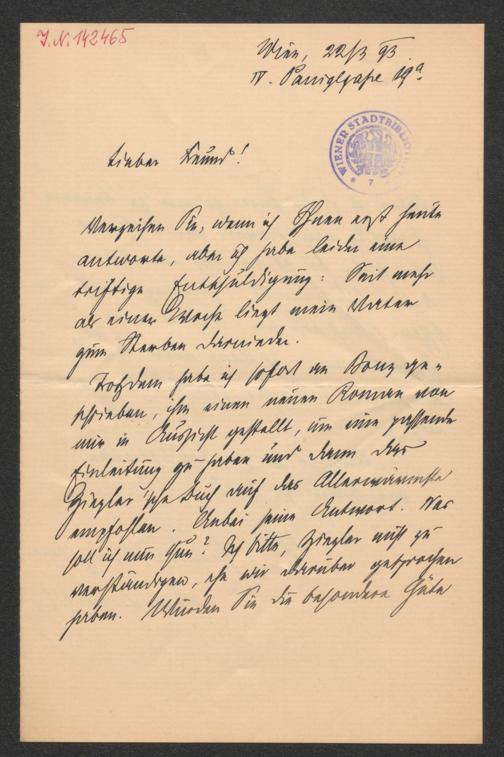 J.N. 142465
Wien, 22/3 93
IV. Paniglgasse 19a
WIENER STADTBIBLIO
7
Lieber Freund!
Verzeihen Sie, wenn ich Ihnen erst heute
antworte, aber ich habe leider eine
triftige Entschuldigung: Seit mehr
als einer Woche liegt mein Vater
zum Sterben darnieder.
Trotzdem habe ich sofort an Bonz ge-
schrieben, ihm einen neuen Roman von
mir in Aussicht gestellt, um eine passende
Einleitung zu haben und dann das
Ziegler'sche Buch auf das Allerwärmste
empfohlen. Anbei seine Antwort. Was
soll ich nun thun? Ich bitte, Ziegler nicht zu
verständigen, ehe wir darüber gesprochen
haben. Würden Sie die besondere Güte